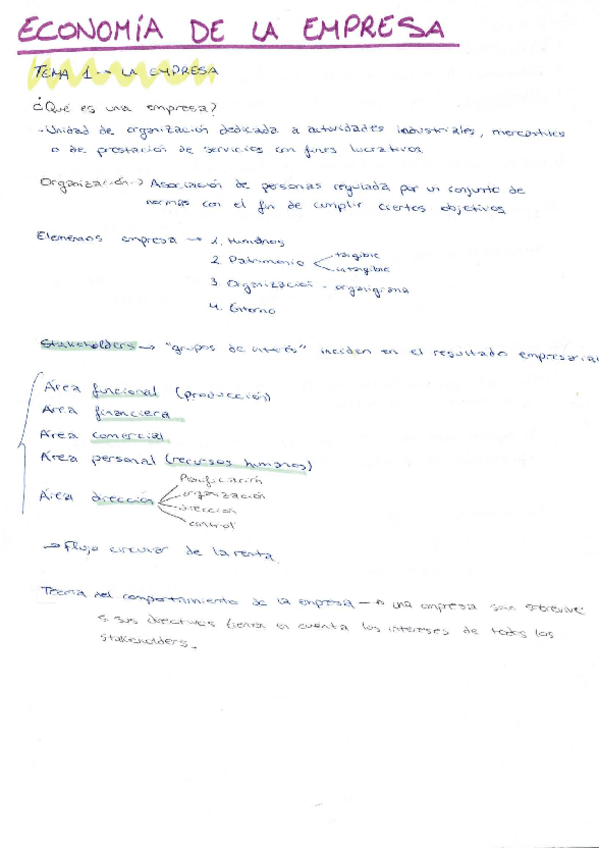 ECONOMÍA DE LA EMPRESA
TEMA 1 -> LA EMPRESA
¿Qué es una empresa?
- Unidad de organización dedicada a actividades industriales, mercantiles
o de prestación de servicios con fines lucrativos.
Organización -> Asociación de personas regulada por un conjunto de
normas con el fin de cumplir ciertos objetivos
Elementos empresa -> 1. Humanos
2. Patrimonio tangible
intangible
3. Organización - organigrama
4. Entorno
Stakeholders -> "grupos de interés" inciden en el resultado empresarial
Área funcional (producción)
Área financiera
Área comercial
Área personal (recursos humanos)
Planificación
Área dirección organización
dirección
control
-> Flujo circular de la renta.
Teoría del comportamiento de la empresa -> una empresa solo sobrevive
si sus directivos tienen en cuenta los intereses de todos los
stakeholders.